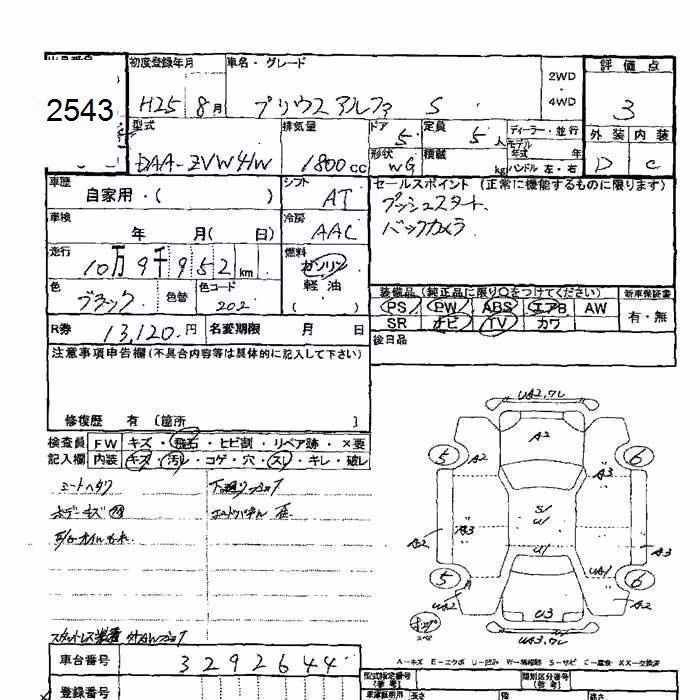 2543
初度登録年月 車名・グレード 2WD ・ 4WD 評価点
H25 8月 プリウスアルファ S 3
型式 排気量 ドア 5 定員 5人 ディーラー・並行 外装 内装
DAA-ZVW41W 1800cc 形状 WG 積載 kg モデル年式 年 ハンドル 左・右 D C
車歴 自家用・( ) シフト AT セールスポイント (正常に機能するものに限ります)
プッシュスタート、
車検 年 月( 日) 冷房 AAC バックカメラ
走行 10万9千952km 燃料 ガソリン 軽油 ( )
色 ブラック 色替 色コード 202 装備品 (純正品に限り○をつけてください) 新車保証書
PS PW ABS エアB AW 有・無
R券 13,120円 名変期限 月 日 SR ナビ TV カワ
注意事項申告欄(不具合内容等は具体的に記入して下さい) 後日品
修復歴 有 〔箇所 〕
検査員 FW キズ・飛石・ヒビ割・リペア跡・×要
記入欄 内装 キズ・汚レ・コゲ・穴・スレ・キレ・破レ
シートヘタリ
ボデーキズ
UA2.ワレ
A2
5 A2 A3 6
S/
U/
A2 A3 U/ A3
5 A UA1 6
UA2 U3 A2
UA3.ワレ
A-キズ E-エクボ U-凹み W-補修跡 S-サビ C-腐食 XX-交換済
車台番号 3292644
登録番号
型式指定番号 (参考) 類別区分番号 (参考)